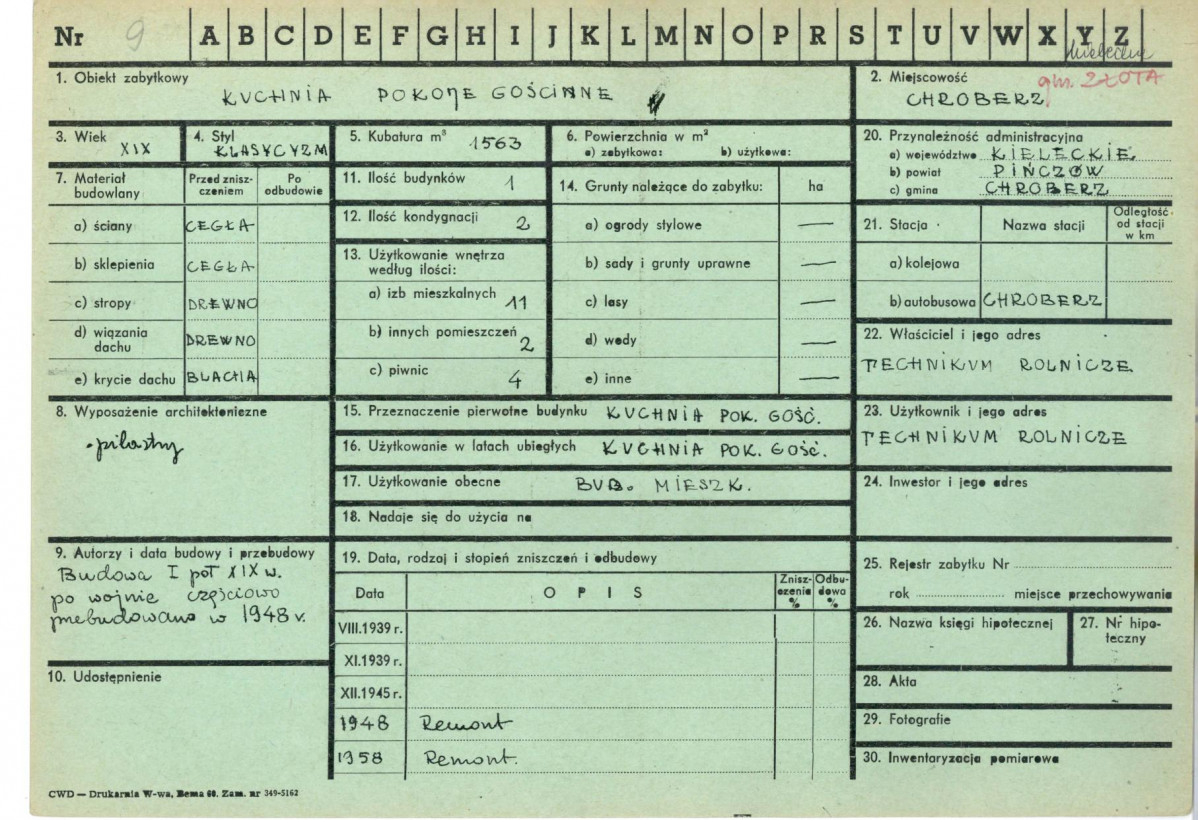 Nr 9 A B C D E F G H I J K L M N O P R S T U V W X Y Z
1. Obiekt zabytkowy
KUCHNIA POKOJE GOŚCINNE
2. Miejscowość
gm. ZŁOTA
CHROBERZ
3. Wiek
XIX
4. Styl
KLASYCYZM
5. Kubatura m³ 1563
6. Powierzchnia w m²
a) zabytkowa: b) użytkowa:
20. Przynależność administracyjna
a) województwo KIELECKIE
b) powiat PIŃCZÓW
c) gmina CHROBERZ
7. Materiał budowlany
Przed zniszczeniem
Po odbudowie
a) ściany CEGŁA
b) sklepienia CEGŁA
c) stropy DREWNO
d) wiązania dachu DREWNO
e) krycie dachu BLACHA
11. Ilość budynków 1
12. Ilość kondygnacji 2
13. Użytkowanie wnętrza
według ilości:
a) izb mieszkalnych 11
b) innych pomieszczeń 2
c) piwnic 4
14. Grunty należące do zabytku: ha
a) ogrody stylowe —
b) sady i grunty uprawne —
c) lasy —
d) wody —
e) inne —
21. Stacja Nazwa stacji Odległość od stacji w km
a) kolejowa
b) autobusowa CHROBERZ
22. Właściciel i jego adres
TECHNIKUM ROLNICZE
8. Wyposażenie architektoniczne
- pilastry
15. Przeznaczenie pierwotne budynku KUCHNIA POK. GOŚĆ.
16. Użytkowanie w latach ubiegłych KUCHNIA POK. GOŚĆ.
17. Użytkowanie obecne BUD. MIESZK.
18. Nadaje się do użycia na
23. Użytkownik i jego adres
TECHNIKUM ROLNICZE
24. Inwestor i jego adres
9. Autorzy i data budowy i przebudowy
Budowa I poł XIX w.
po wojnie częściowo
przebudowano w 1948 r.
10. Udostępnienie
19. Data, rodzaj i stopień zniszczeń i odbudowy
Data OPIS Zniszczenia % Odbudowa %
VIII.1939 r.
XI.1939 r.
XII.1945 r.
1948 Remont
1958 Remont.
25. Rejestr zabytku Nr
rok miejsce przechowywania
26. Nazwa księgi hipotecznej
27. Nr hipoteczny
28. Akta
29. Fotografie
30. Inwentaryzacja pomiarowa
CWD — Drukarnia W-wa, Bema 60. Zam. nr 349-5162